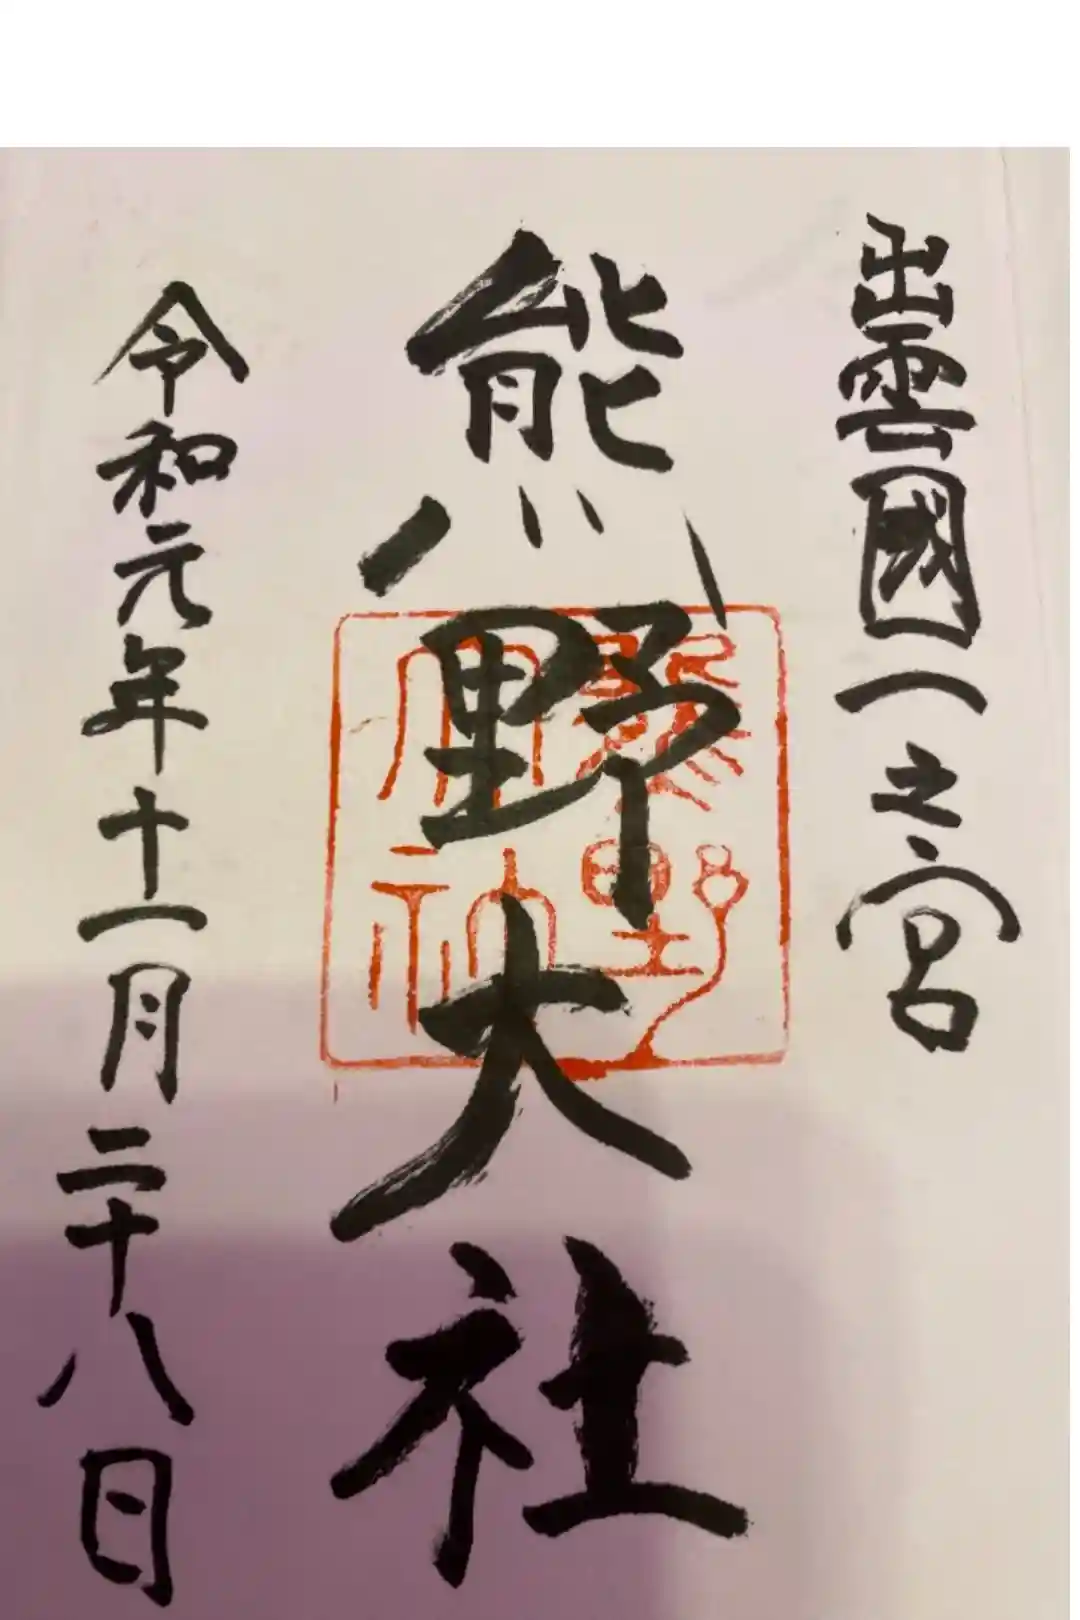 出雲國一之宮
熊野大社
熊野
大社
令和元年十一月二十八日